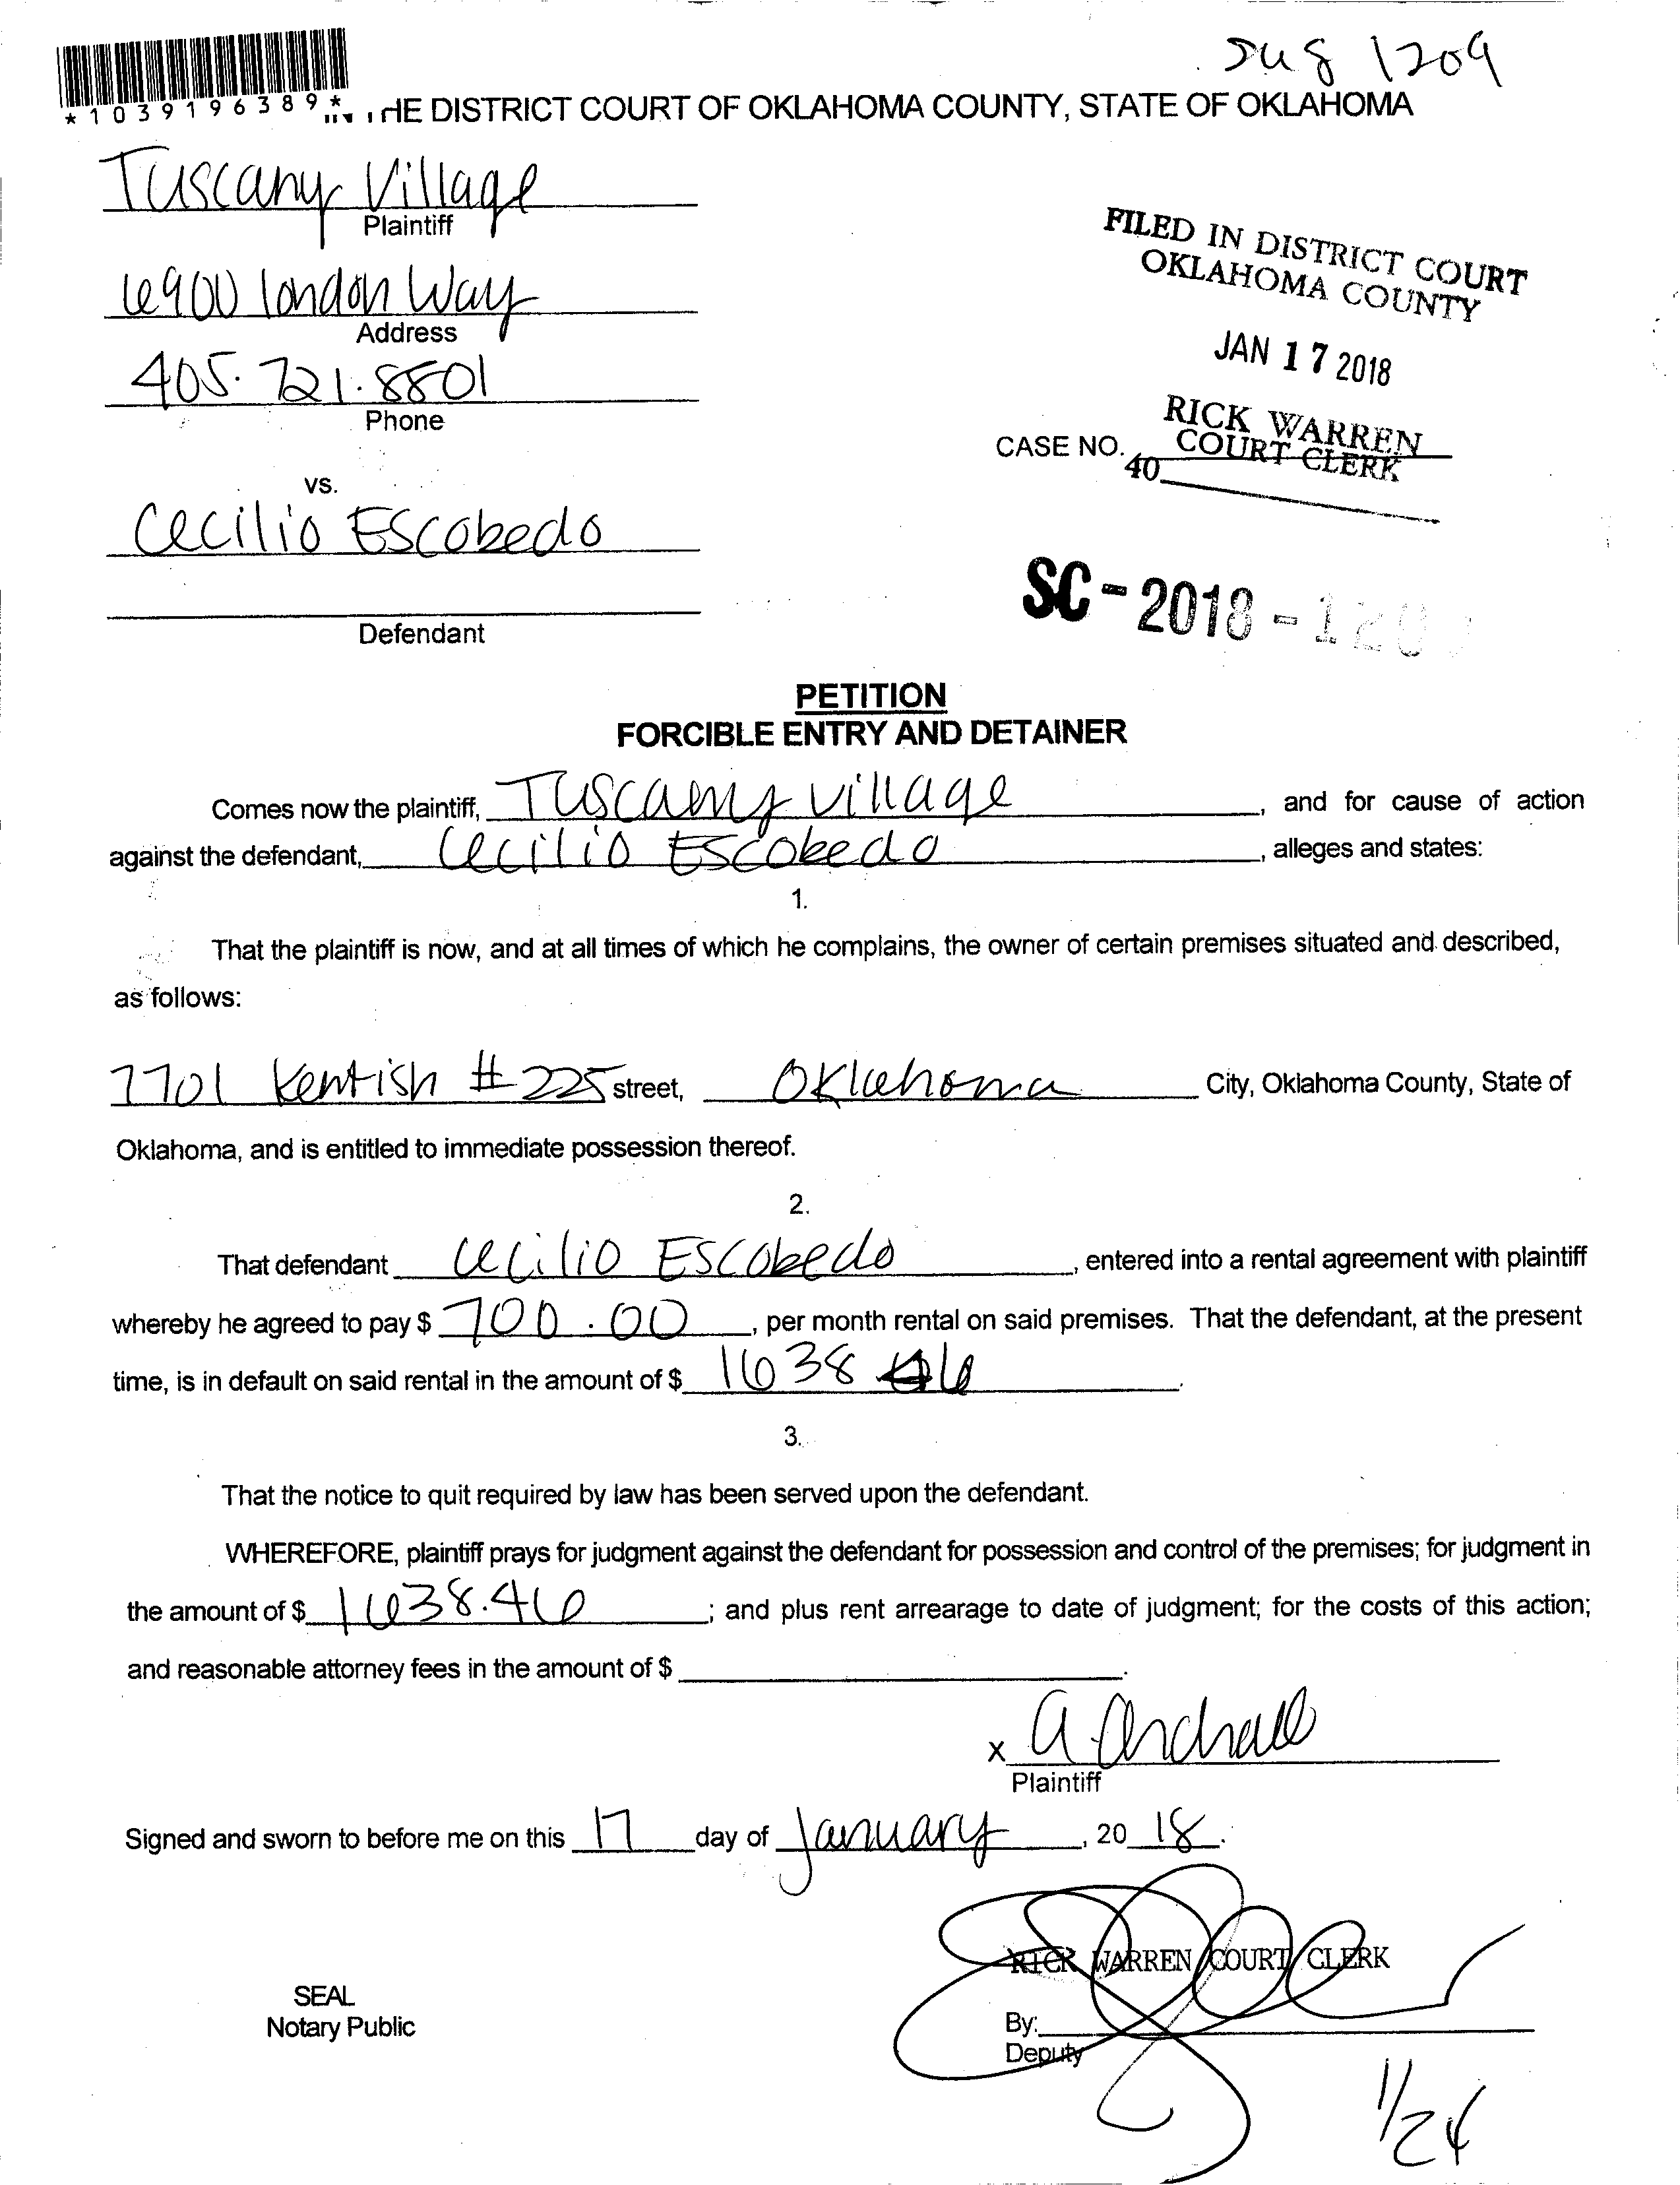 1209
*1039196389*
THE DISTRICT COURT OF OKLAHOMA COUNTY, STATE OF OKLAHOMA
Tuscany Village
Plaintiff
6900 London Way
Address
405.721.8801
Phone
vs.
Cecilio Escobedo
Defendant
FILED IN DISTRICT COURT
OKLAHOMA COUNTY
JAN 17 2018
RICK WARREN
COURT CLERK
CASE NO.
40
SC-2018-120
PETITION
FORCIBLE ENTRY AND DETAINER
Comes now the plaintiff, Tuscany Village, and for cause of action
against the defendant, Cecilio Escobedo, alleges and states:
1.
That the plaintiff is now, and at all times of which he complains, the owner of certain premises situated and described,
as follows:
7701 Kentish #225 street, Oklahoma City, Oklahoma County, State of
Oklahoma, and is entitled to immediate possession thereof.
2.
That defendant Cecilio Escobedo, entered into a rental agreement with plaintiff
whereby he agreed to pay $ 700.00, per month rental on said premises. That the defendant, at the present
time, is in default on said rental in the amount of $ 1638 46.
3.
That the notice to quit required by law has been served upon the defendant.
WHEREFORE, plaintiff prays for judgment against the defendant for possession and control of the premises; for judgment in
the amount of $ 1638.46; and plus rent arrearage to date of judgment; for the costs of this action;
and reasonable attorney fees in the amount of $ .
x
Plaintiff
Signed and sworn to before me on this 17 day of January, 2018.
RICK WARREN COURT CLERK
SEAL
Notary Public
By:
Deputy
1/24